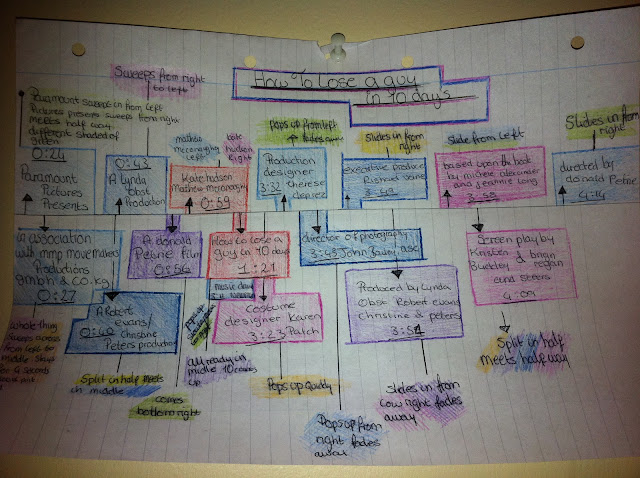 How To Lose a guy
in 10 days
Sweeps from right
to left
Paramount sweeps in from Left
Pictures presents sweeps from right
meets half way.
different shaded of
green
0:24
Paramount
Pictures
Presents
0:43
A Lynda
Obst
Production
Left
kate
hudson
Right
Kate hudson
Mathew mcconaughey
0:59
Pops up from left
fades away
Production
designer
3:32 therese
deprez
Slides in
from right
executive producer
Richard Vane
3:49
Slide from Left
based upon the book
by michele alexander
and jeannie long
3:59
Slides in from
right
directed by
donald Petrie
4:14
in association
with mmp movemakers
Productions
gmbh & co.kg
0:27
A Robert
evans/
Christine
Peters production
0:40
A donald
Petrie film
0:56
How to lose a
guy in 10 days
1:21
music
Costume
designer Karen
3:23 Patch
director of photography
3:43 John Bailey, asc
Produced by Lynda
Obst Robert evans
christine & peters
3:51
Screen play by
Kristen & brian
Buckley regan
and
4:09
whole thing
from left to
middle stays
for 4 seconds
Split in half meets
in middle
comes
bottom right
already in
middle 10 comes
up
Pops up Quickly
Pops up from
right fades
away
slides in from
low right fades
away
Split in half
meets half way